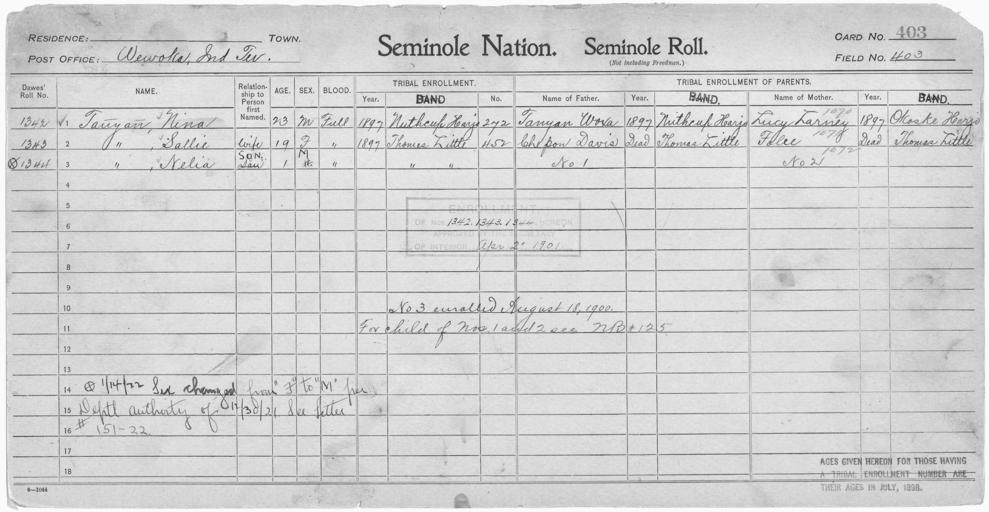 RESIDENCE: TOWN.
POST OFFICE: Wewoka, Ind Ter.
Seminole Nation. Seminole Roll.
(Not including Freedmen.)
CARD NO. 403
FIELD NO. 403
Dawes' Roll No. NAME. Relationship to Person first Named. AGE. SEX. BLOOD. TRIBAL ENROLLMENT. TRIBAL ENROLLMENT OF PARENTS.
Year. BAND No. Name of Father. Year. BAND. Name of Mother. Year. BAND.
1342 1 Tanyan, Nina 23 M Full 1897 Nuthcup Harjo 272 Tanyan Wova 1897 Nuthcup Harjo Lucy Larney 1070 1897 Oloske Harjo
1343 2 " , Sallie Wife 19 F " 1897 Thomas Little 452 Chepon Davis Dead Thomas Little Folee 1078 Dead Thomas Little
⊗1344 3 " , Nelia Son; Dau 1 M " " " No 1 No 2 1072
4
5
ENROLLMENT
6 OF NOS. 1342.1343.1344 HEREON
APPROVED BY THE SECRETARY
7 OF INTERIOR Apr 2" 1901
8
9
10 No 3 enrolled August 18, 1900.
11 For child of Nos. 1 and 2 see NB #125
12
13
14 ⊗ 1/14/22 Sex changed from "F" to "M" per
15 Depth authority of 12/30/21 See Letter
16 # 151-22
17
18
6-1044
AGES GIVEN HEREON FOR THOSE HAVING
A TRIBAL ENROLLMENT NUMBER ARE
THEIR AGES IN JULY, 1898.